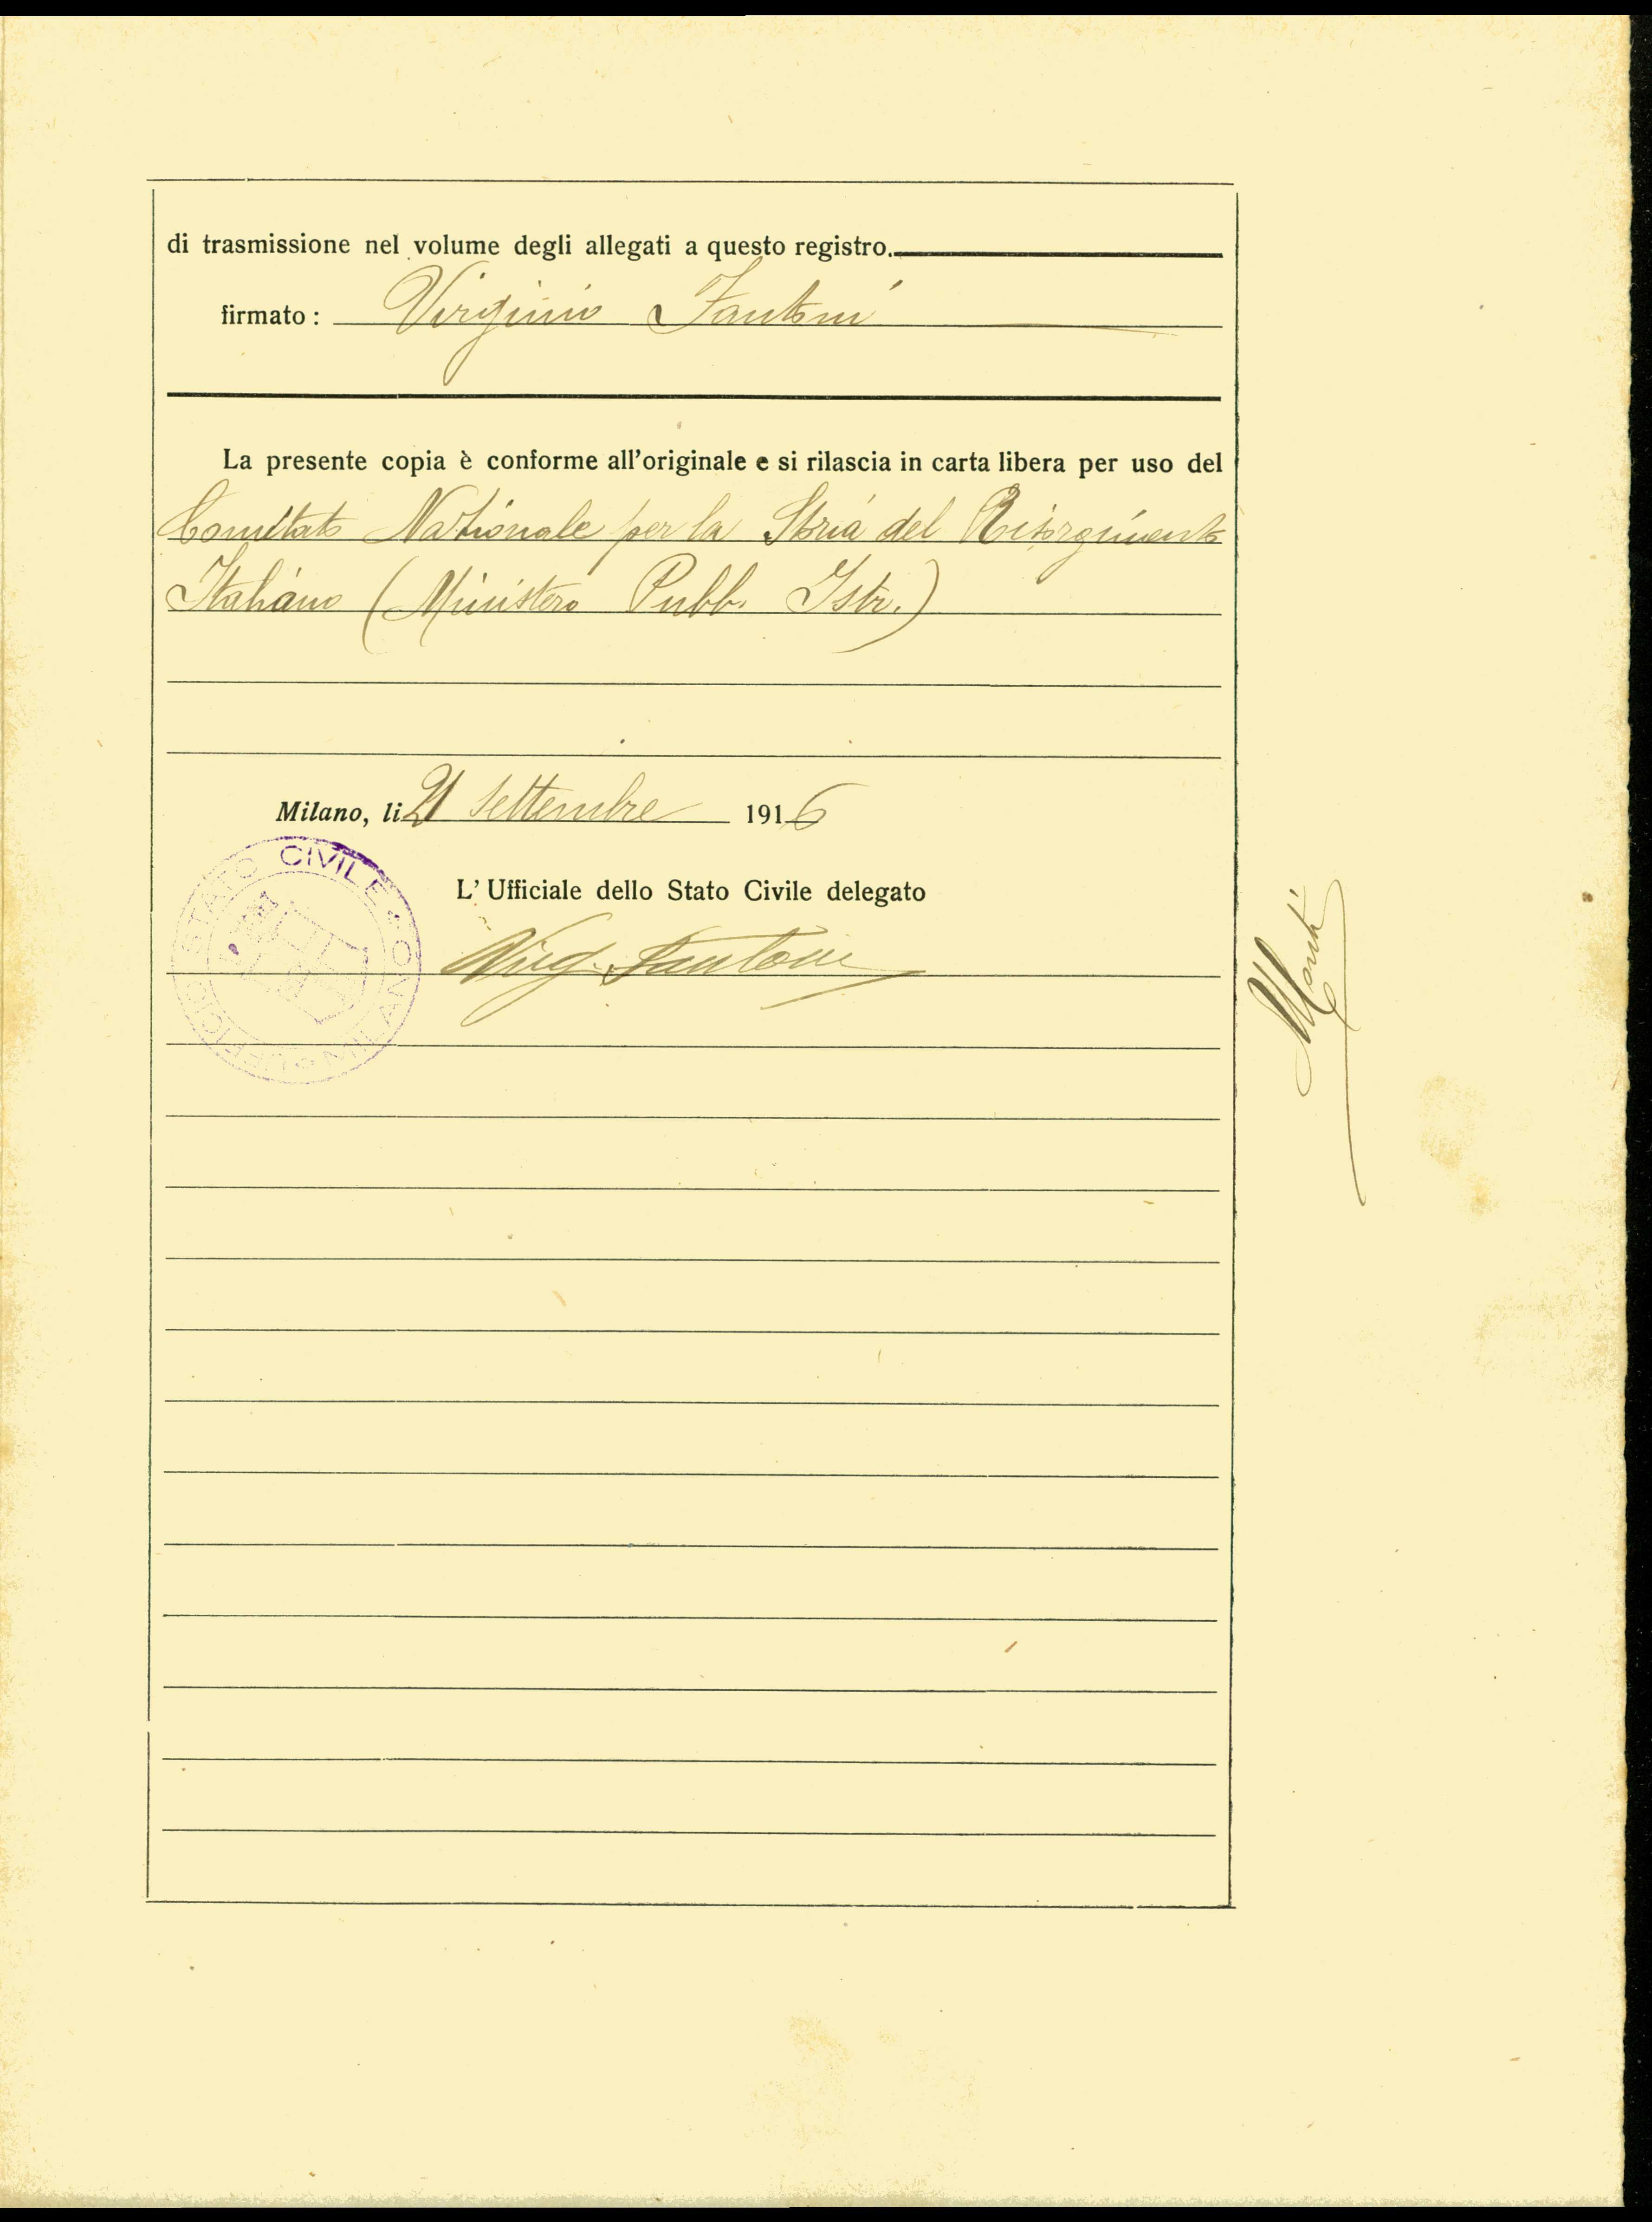 di trasmissione nel volume degli allegati a questo registro.
firmato : Virginio Fantoni
La presente copia è conforme all'originale e si rilascia in carta libera per uso del
Comitato Nazionale per la Storia del Risorgimento
Italiano (Ministero Pubb. Istr.)
Milano, li 21 Settembre 1916
L' Ufficiale dello Stato Civile delegato
Virg. Fantoni
UFFICIO STATO CIVILE MILANO
Monti